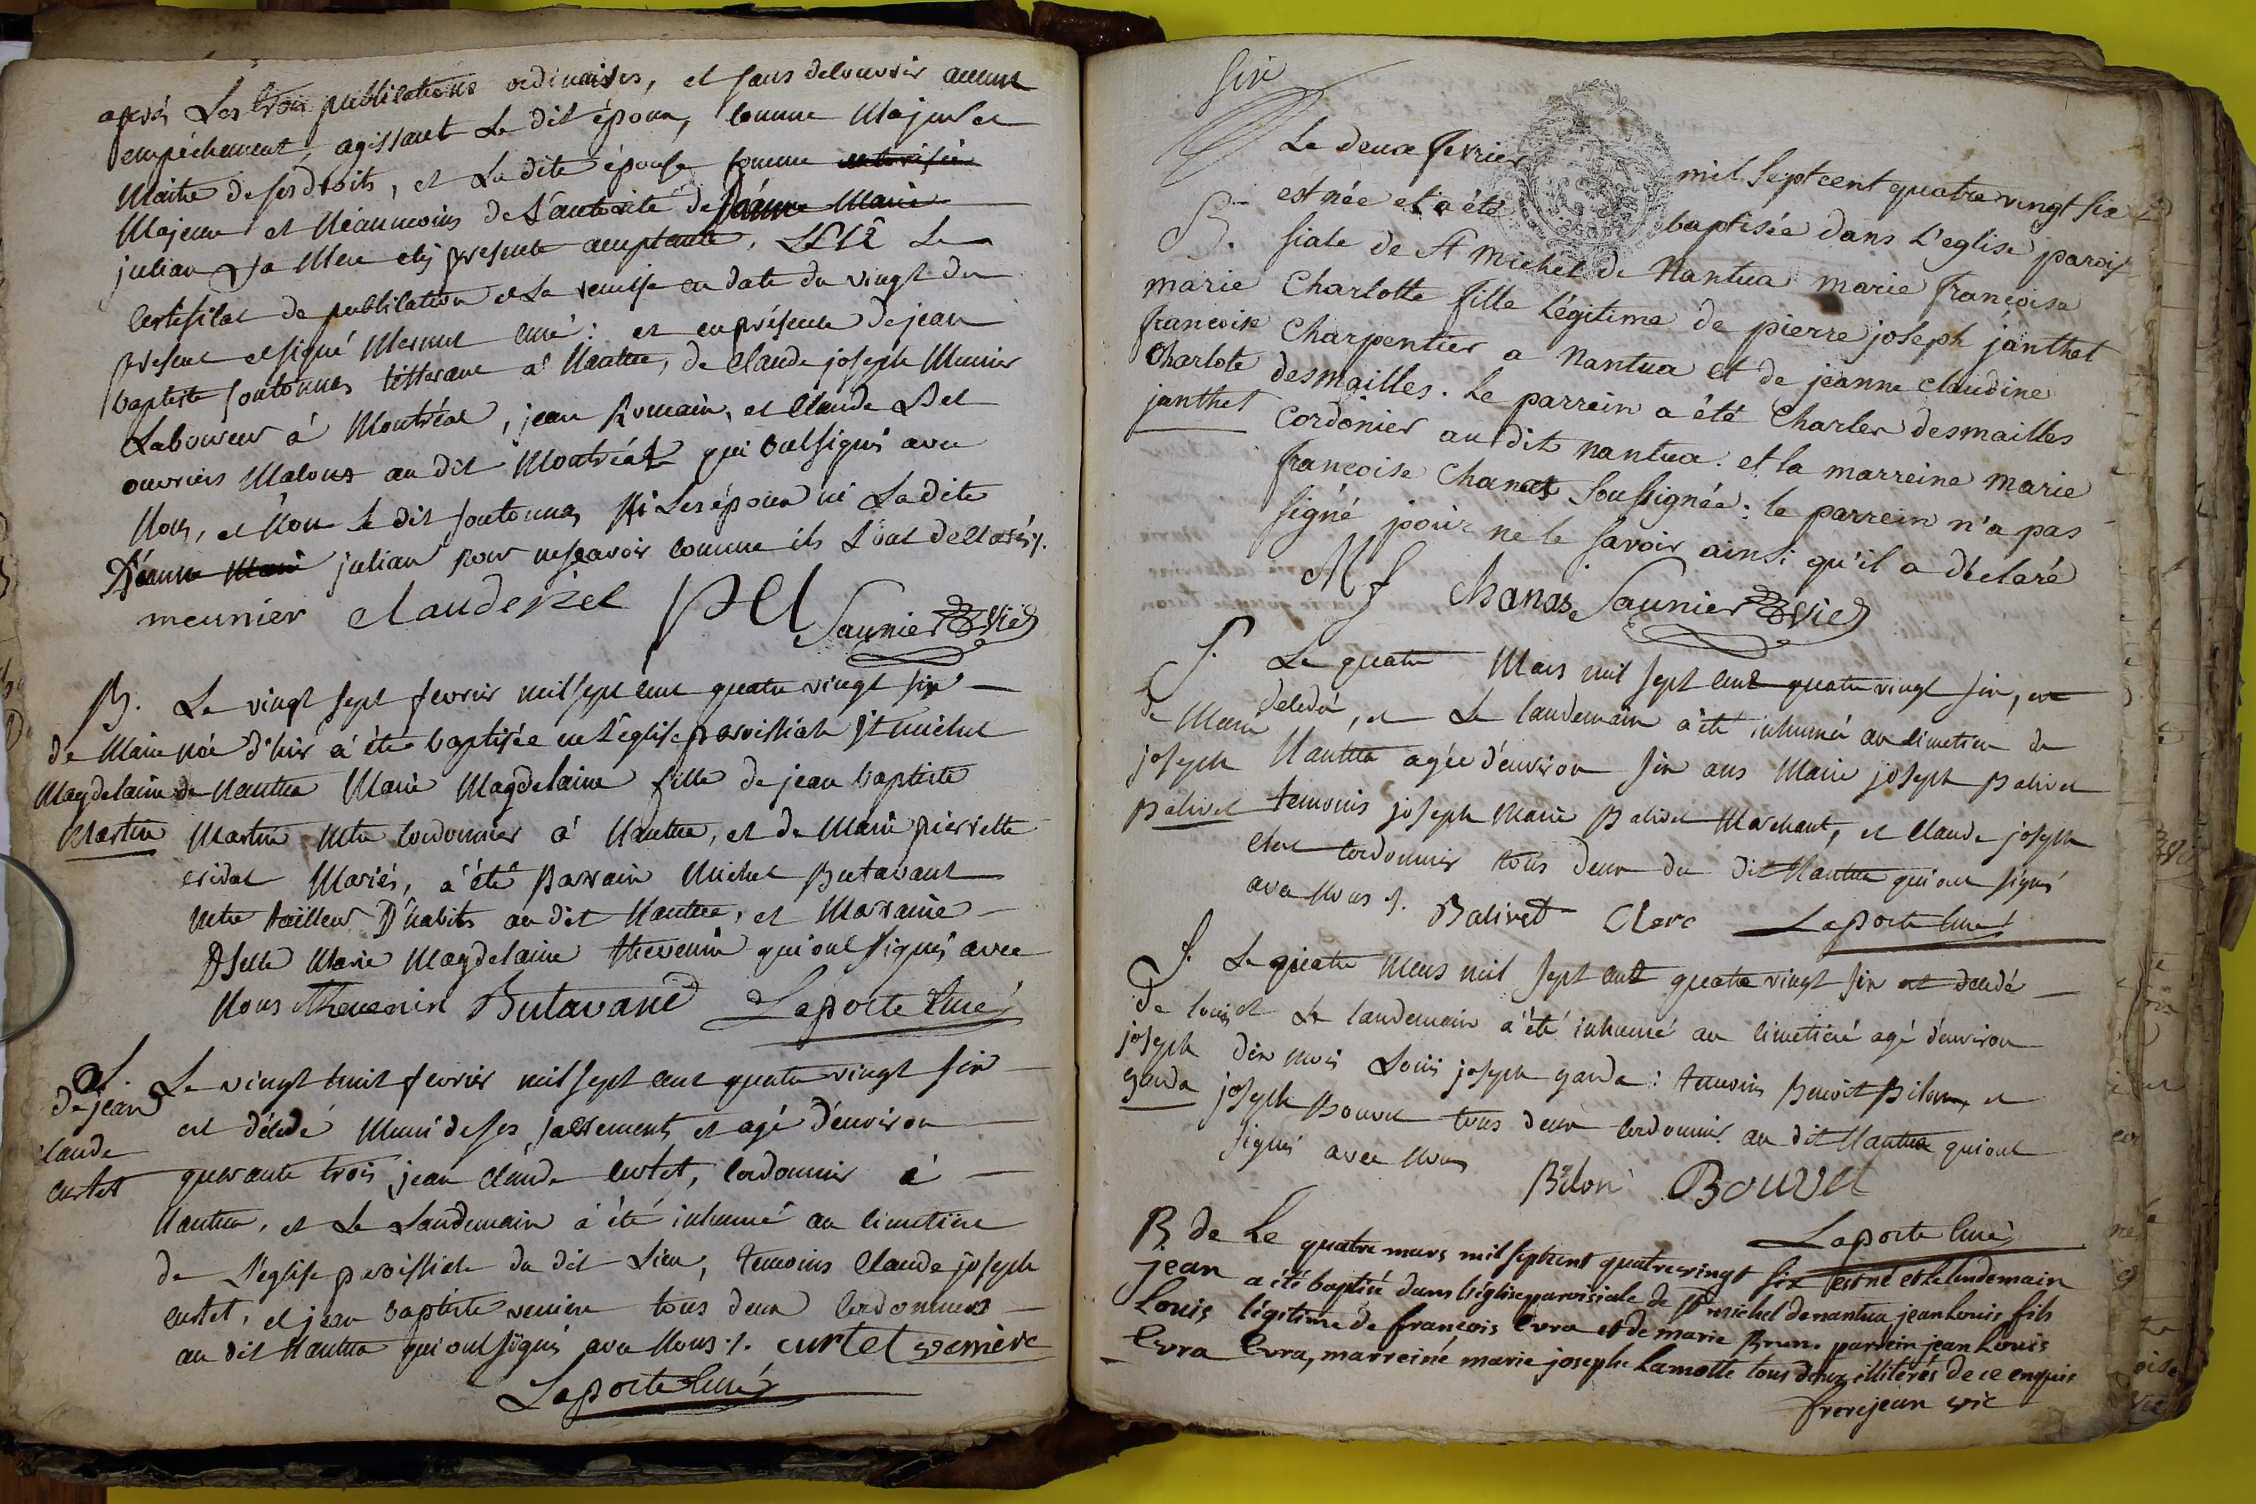 après Les trois publications ordinaires, et sans decouvrir aucun
empêchement, agissant Le dit époux, comme Majeur et
Maitre de ses droits, et La dite épouse comme
Majeure et Néaumoins de L'autorité de jeanne Marie
julian sa Mere icy presente acceptante, Le
Certificat de publication et La remise en date du vingt du
present et signé curé : et en présence de jean
baptiste à Nantua, de Claude joseph Munier
Laboureur à Montréal, jean Romain, et Claude Bel
ouvriers au dit Montréal qui ont signés avec
Nous, et Non Le dit Ni Les époux ni La dite
jeanne Marie julian pour ne sçavoir comme ils L'ont déclarés ./.
meunier claude Saunier vic
B. Le vingt sept fevrier mil sept cent quatre vingt six
de Marie née d'hier a été baptisée en L'église paroissiale St michel
Magdelaine de Nantua Marie Magdelaine fille de jean baptiste
Martin Martin Mtre Cordonnier à Nantua, et de Marie pierrette
Mariés, à été Parrain Michel Butavant
Mtre tailleur D'habits au dit Nantua, et Marraine
Dselle Marie Magdelaine thevenin qui ont signés avec
Nous Thevenin Butavand Laporte Curé
S. Le vingt huit fevrier mil sept cent quatre vingt six
de jean est décédé Muni de ses sacrements, et agé d'environ
claude
curtet quarante trois, jean claude Curtet, Cordonnier à
Nantua, et Le Landemain à été inhumé au Cimetiere
de L'église paroissiale du dit Lieu, temoins Claude joseph
curtet, et jean baptiste verniere tous deux Cordonniers
au dit Nantua qui ont signés avec Nous ./. curtet verniere
Laporte Curé
six
Le deux fevrier mil sept cent quatre vingt six
B. est née et a été baptisée dans L'eglise parois
siale de St michel de Nantua marie francoise
marie Charlotte fille Légitime de pierre joseph janthet
francoise Charpentier a Nantua et de jeanne Claudine
Charlote desmailles. Le parrein a été Charles desmailles
janthet Cordonier au dit Nantua. et la marreine marie
francoise Chanas Soussignée: le parrein n'a pas
signé pour ne le savoir ainsi qu'il a déclaré
M f Chanas Saunier vic
S. Le quatre Mars mil sept cent quatre vingt six, est
de Marie décédé, et Le Landemain à été inhumée au Cimetiere de
joseph Nantua agée d'environ six ans Marie joseph Balivet
Balivet temoins joseph Marie Balivet Marchant, et Claude joseph
Clerc Cordonnier tous deux du dit Nantua qui ont signés
avec Nous ./. Balivet Clerc Laporte Curé
S. Le quatre Mars mil sept cent quatre vingt six est décédé
de Louis et Le Landemain à été inhumé au Cimetiere agé d'environ
joseph dix Mois Louis joseph garda : temoins Benoit Bilon, et
garda joseph Bouvet tous deux Cordonniers au dit Nantua qui ont
signés avec Nous Bilon Bouvet
Laporte Curé
B. de Le quatre mars mil sept cent quatre vingt six est né et le lendemain
jean a été baptisé dans l'église paroisiale de St michel de nantua jean Louis fils
Louis légitime de françois Evra et de marie Brun. parrein jean Louis
Evra Evra, marreine marie josephe Lamotte tous deux illitérés de ce enquis
frerejean vic